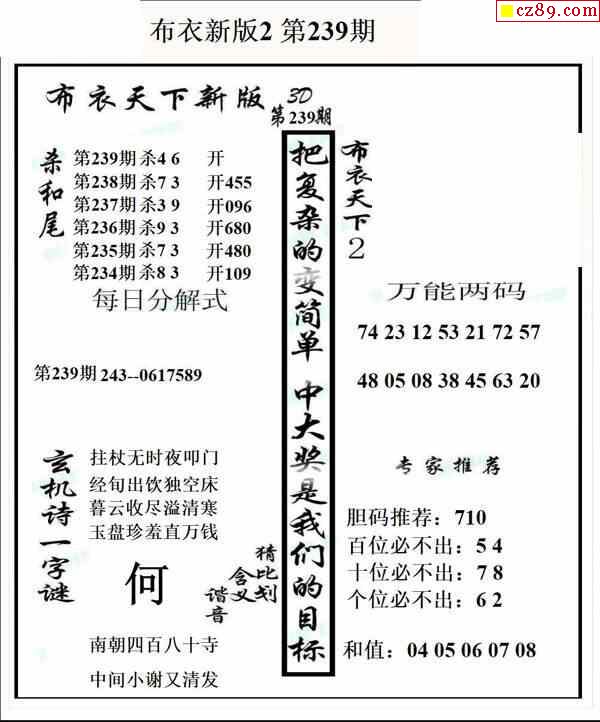 cz89.com
布衣新版2 第239期
布衣天下新版 3D
第239期
杀和尾
第239期杀4 6 开
第238期杀7 3 开455
第237期杀3 9 开096
第236期杀9 3 开680
第235期杀7 3 开480
第234期杀8 3 开109
每日分解式
第239期243--0617589
玄机诗一字谜
拄杖无时夜叩门
经旬出饮独空床
暮云收尽溢清寒
玉盘珍羞直万钱
何
猜比划
含义
谐音
南朝四百八十寺
中间小谢又清发
把复杂的变简单 中大奖是我们的目标
布衣天下2
万能两码
74 23 12 53 21 72 57
48 05 08 38 45 63 20
专家推荐
胆码推荐：710
百位必不出：5 4
十位必不出：7 8
个位必不出：6 2
和值：04 05 06 07 08